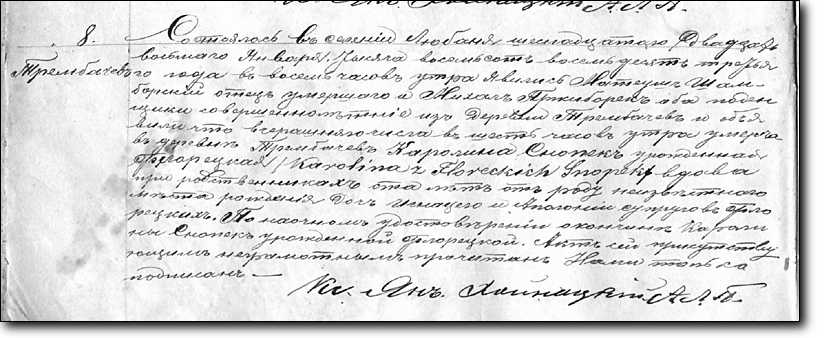 Кс. Янъ Хойнацкій А.Л.П.
8. Состоялось въ селеніи Любаня шестнадцатаго Двадцать
Трембачевъ восьмаго Января тысяча восемьсотъ восемьдесятъ третья
го года въ восемь часовъ утра Явились Матеушъ Шам
борскій отецъ умершаго и Михалъ Пржиборекъ оба поден
щики совершеннолѣтніе изъ Деревни Трембачевъ и объя
вили что вчерашняго числа въ шесть часовъ утра умерла
въ деревнѣ Трембачевъ Каролина Снопекъ урожденная
Флорецкая /Karolina z Floreckich Snopek/ вдова
при родственникахъ ста лѣтъ отъ роду неизвѣстнаго
мѣста рожденія Дочь и Аполоніи супруговъ Фло
рецкихъ. По наочномъ удостовѣреніи о кончинѣ Кароли
ны Снопекъ урожденной Флорецкой. Актъ сей присутству
ющимъ неграмотнымъ прочитанъ Нами только
подписанъ —
Кс. Янъ. Хойнацкій А.Л.П.